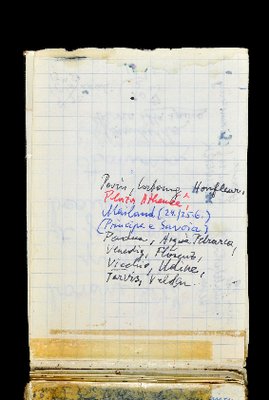 Paris, Cabourg, Honfleur,
Plaza Athénée,
Mailand (24./25.6.)
(Principe e Savoia)
Padua, Arquà Petrarca,
Venedig, Florenz,
Vicenza, Udine,
Tarvis, Velden.